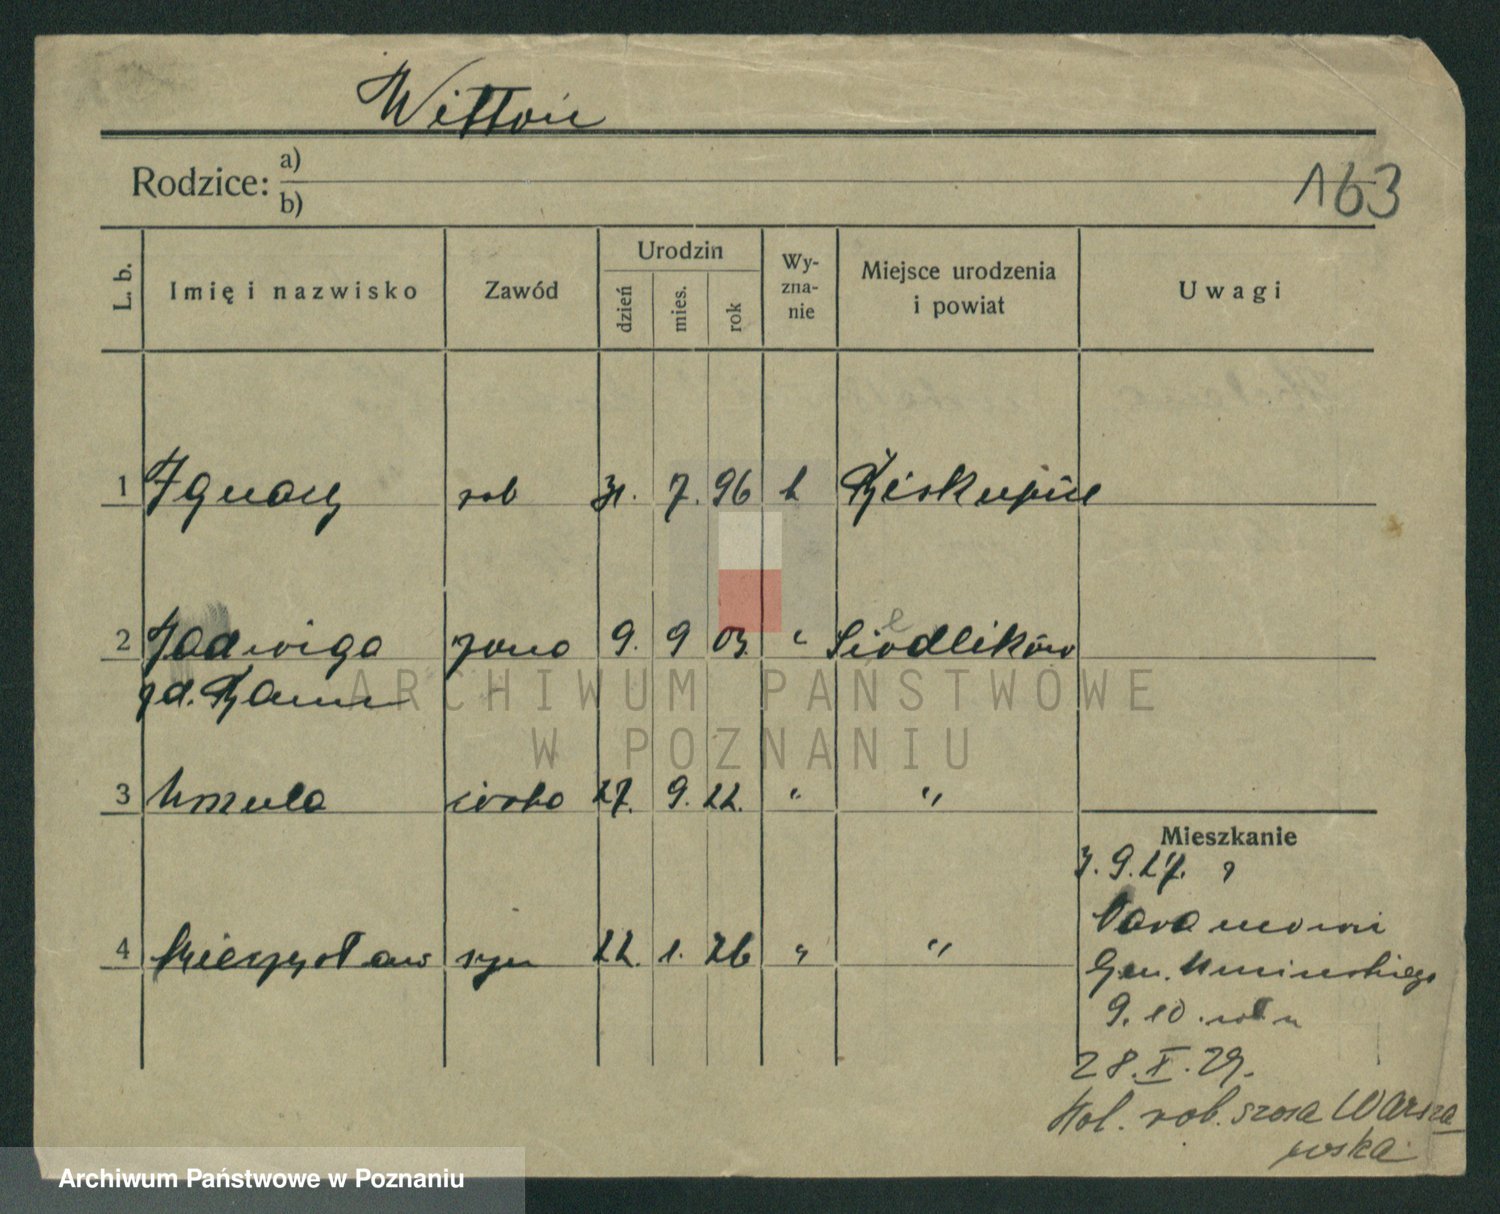 Wittoń
Rodzice: a)
b)
163
L. b. Imię i nazwisko Zawód Urodzin dzień mies. rok Wyznanie Miejsce urodzenia i powiat Uwagi
1 Ignacy rob 31. 7. 96 k Biskupice
2 Jadwiga żona 9. 9 03. " Siodlików
e
zd.
3 Urszula córka 27. 9. 22. " "
Mieszkanie
3. 9. 27.
4 Mieczysław syn 22. 1. 26 " "
Gen. Umińskiego
9. 10.
28. X. 29.
Kol. rob. szosa Warsza
wska
ARCHIWUM PAŃSTWOWE
W POZNANIU
Archiwum Państwowe w Poznaniu